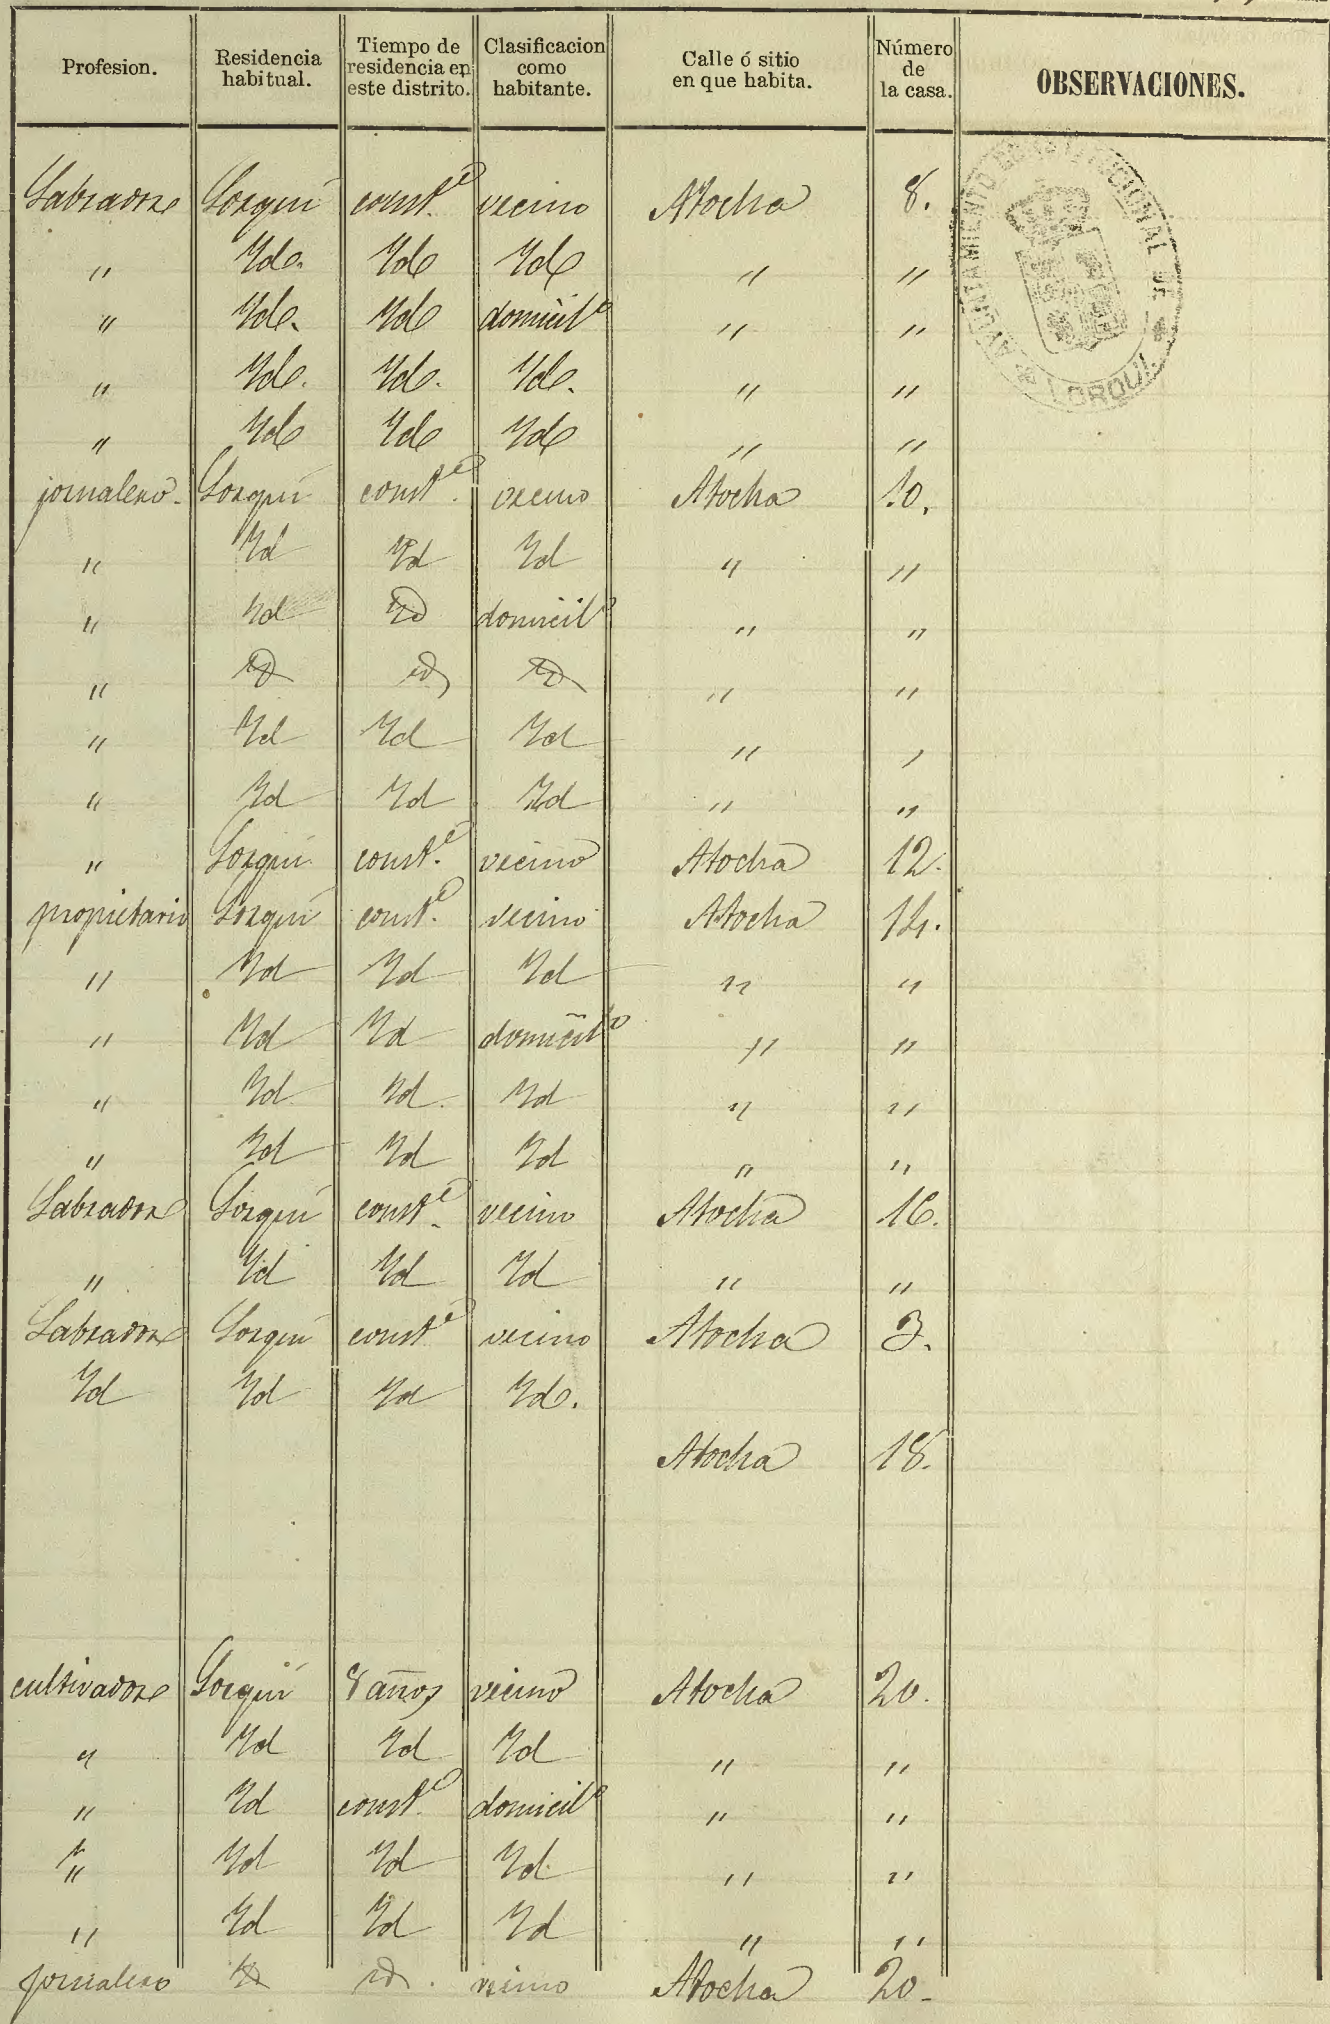 Profesion. Residencia habitual. Tiempo de residencia en este distrito. Clasificacion como habitante. Calle ó sitio en que habita. Número de la casa. OBSERVACIONES.
AYUNTAMIENTO CONSTITUCIONAL DE LORQUI
Labrador Lorquí const.e vecino Atocha 8.
" Yd. Yd Yd " "
" Yd. Yd domicil.o " "
" Yd. Yd. Yd. " "
" Yd Yd Yd " "
jornalero Lorquí const.e vecino Atocha 10.
" Yd Yd Yd " "
" Yd Yd domicil.o " "
" Yd Yd Yd " "
" Yd Yd Yd " "
" Yd Yd Yd " "
" Lorquí const.e vecino Atocha 12.
propietario Lorquí const.e vecino Atocha 14.
" Yd Yd Yd " "
" Yd Yd domicil.o " "
" Yd Yd. Yd " "
" Yd Yd Yd " "
Labrador Lorquí const.e vecino Atocha 16.
" Yd Yd Yd " "
Labrador Lorquí const.e vecino Atocha 3.
Yd Yd Yd Yd.
Atocha 18.
cultivador Lorquí 8 años vecino Atocha 20.
" Yd Yd Yd " "
" Yd const.e domicil.o " "
" Yd Yd Yd. " "
" Yd Yd Yd " "
jornalero Yd Yd. vecino Atocha 20.